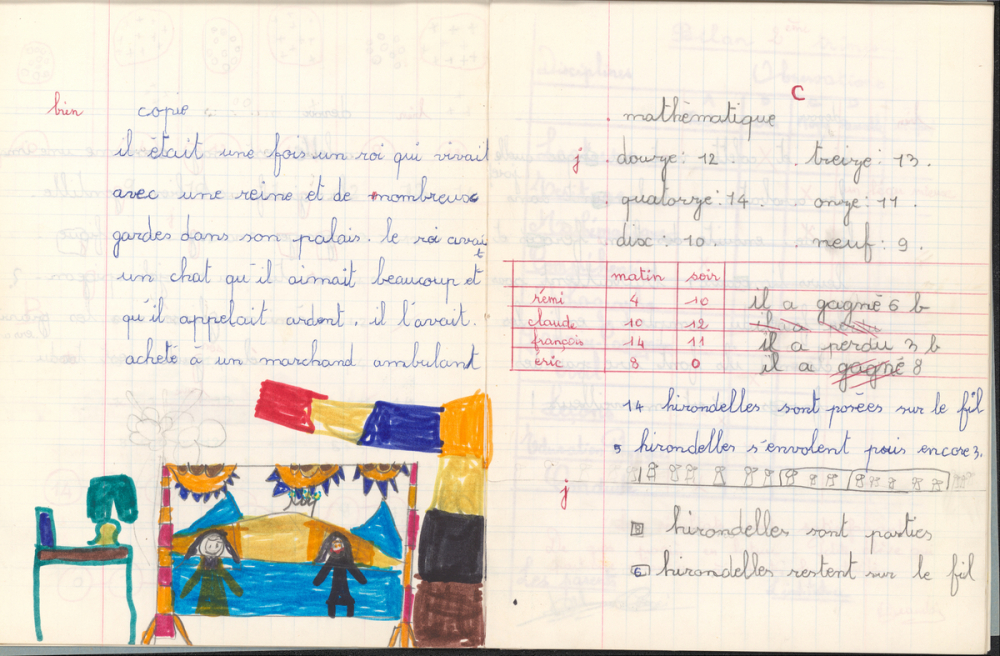 bien
copie :
il était une fois un roi qui vivait
avec une reine et de nombreux
gardes dans son palais. le roi avait
un chat qu'il aimait beaucoup et
qu'il appelait ardent. il l'avait.
acheté à un marchand ambulant
C
mathématique
j douze : 12 . treize : 13 .
quatorze : 14 onze : 11 .
dix : 10 . neuf : 9 .
matin soir
rémi 4 10 il a gagné 6 b
claude 10 12 il a
françois 14 11 il a perdu 3 b
éric 8 0 il a gagné 8
14 hirondelles sont posées sur le fil
5 hirondelles s'envolent puis encore 3.
j
8 hirondelles sont parties
6 hirondelles restent sur le fil